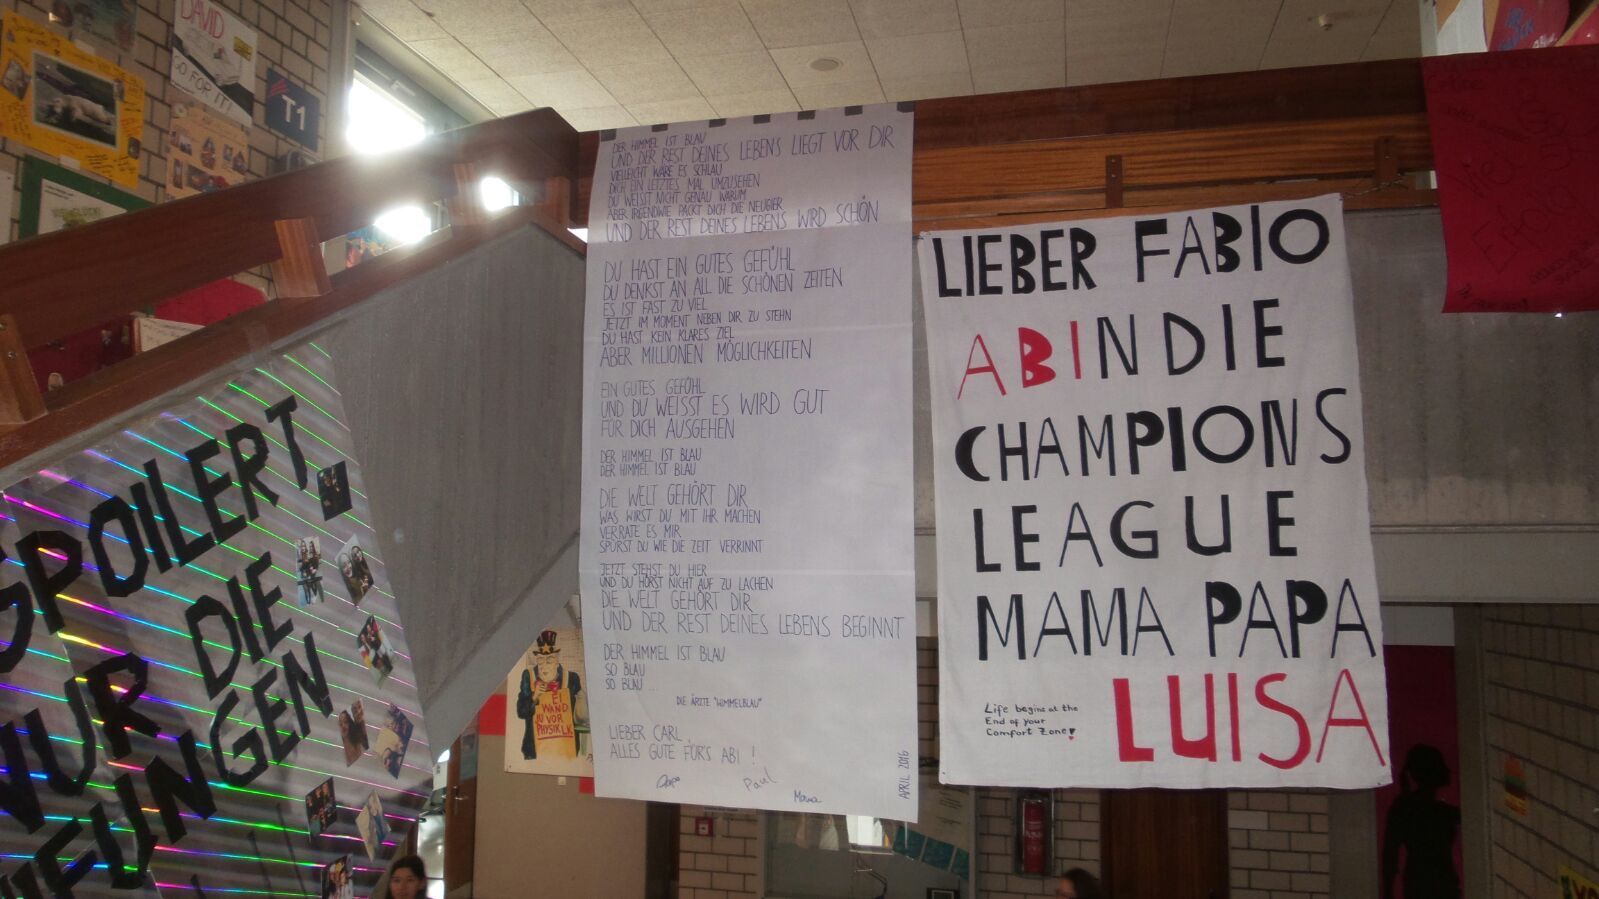 DAVID
GO FOR IT!
T1
DER HIMMEL IST BLAU
UND DER REST DEINES LEBENS LIEGT VOR DIR
VIELLEICHT WÄRE ES SCHLAU
DICH EIN LETZTES MAL UMZUSEHEN
DU WEISST NICHT GENAU WARUM
ABER IRGENDWIE PACKT DICH DIE NEUGIER
UND DER REST DEINES LEBENS WIRD SCHÖN
DU HAST EIN GUTES GEFÜHL
DU DENKST AN ALL DIE SCHÖNEN ZEITEN
ES IST FAST ZU VIEL
JETZT IM MOMENT NEBEN DIR ZU STEHN
DU HAST KEIN KLARES ZIEL
ABER MILLIONEN MÖGLICHKEITEN
EIN GUTES GEFÜHL
UND DU WEISST ES WIRD GUT
FÜR DICH AUSGEHEN
DER HIMMEL IST BLAU
DER HIMMEL IST BLAU
DIE WELT GEHÖRT DIR
WAS WIRST DU MIT IHR MACHEN
VERRATE ES MIR
SPÜRST DU WIE DIE ZEIT VERRINNT
JETZT STEHST DU HIER
UND DU HÖRST NICHT AUF ZU LACHEN
DIE WELT GEHÖRT DIR
UND DER REST DEINES LEBENS BEGINNT
DER HIMMEL IST BLAU
SO BLAU
SO BLAU ...
DIE ÄRZTE "HIMMELBLAU"
LIEBER CARL,
ALLES GUTE FÜR'S ABI !
Papa Paul Mama
APRIL 2016
LIEBER FABIO
ABINDIE
CHAMPIONS
LEAGUE
MAMA PAPA
LUISA
Life begins at the
End of your
Comfort Zone!
SPOILERT,
NUR DIE
EI
WAND
JU VOR
PHYSIK LK